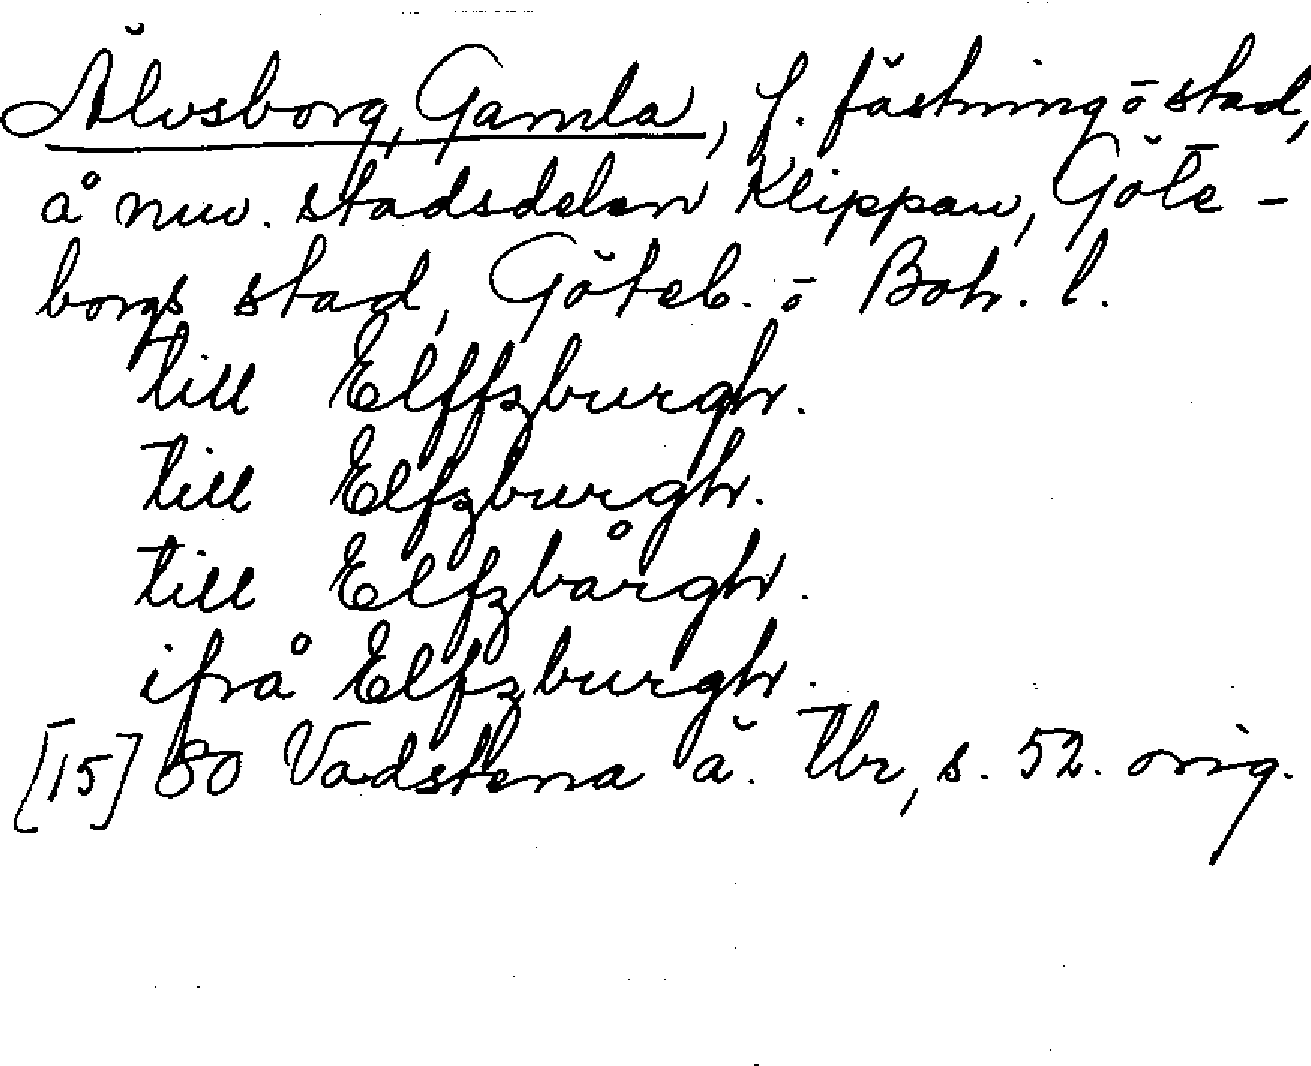 Älvsborg, Gamla, f. fästning o stad,
å nuv. stadsdelen Klippan, Göte-
borgs stad, Göteb. o Boh. l.
till Elffzburgh.
till Elfzburgh.
till Elfzbårgh.
ifrå Elfzburgh.
[15] 80 Vadstena ä. Tbr, s. 52. orig.